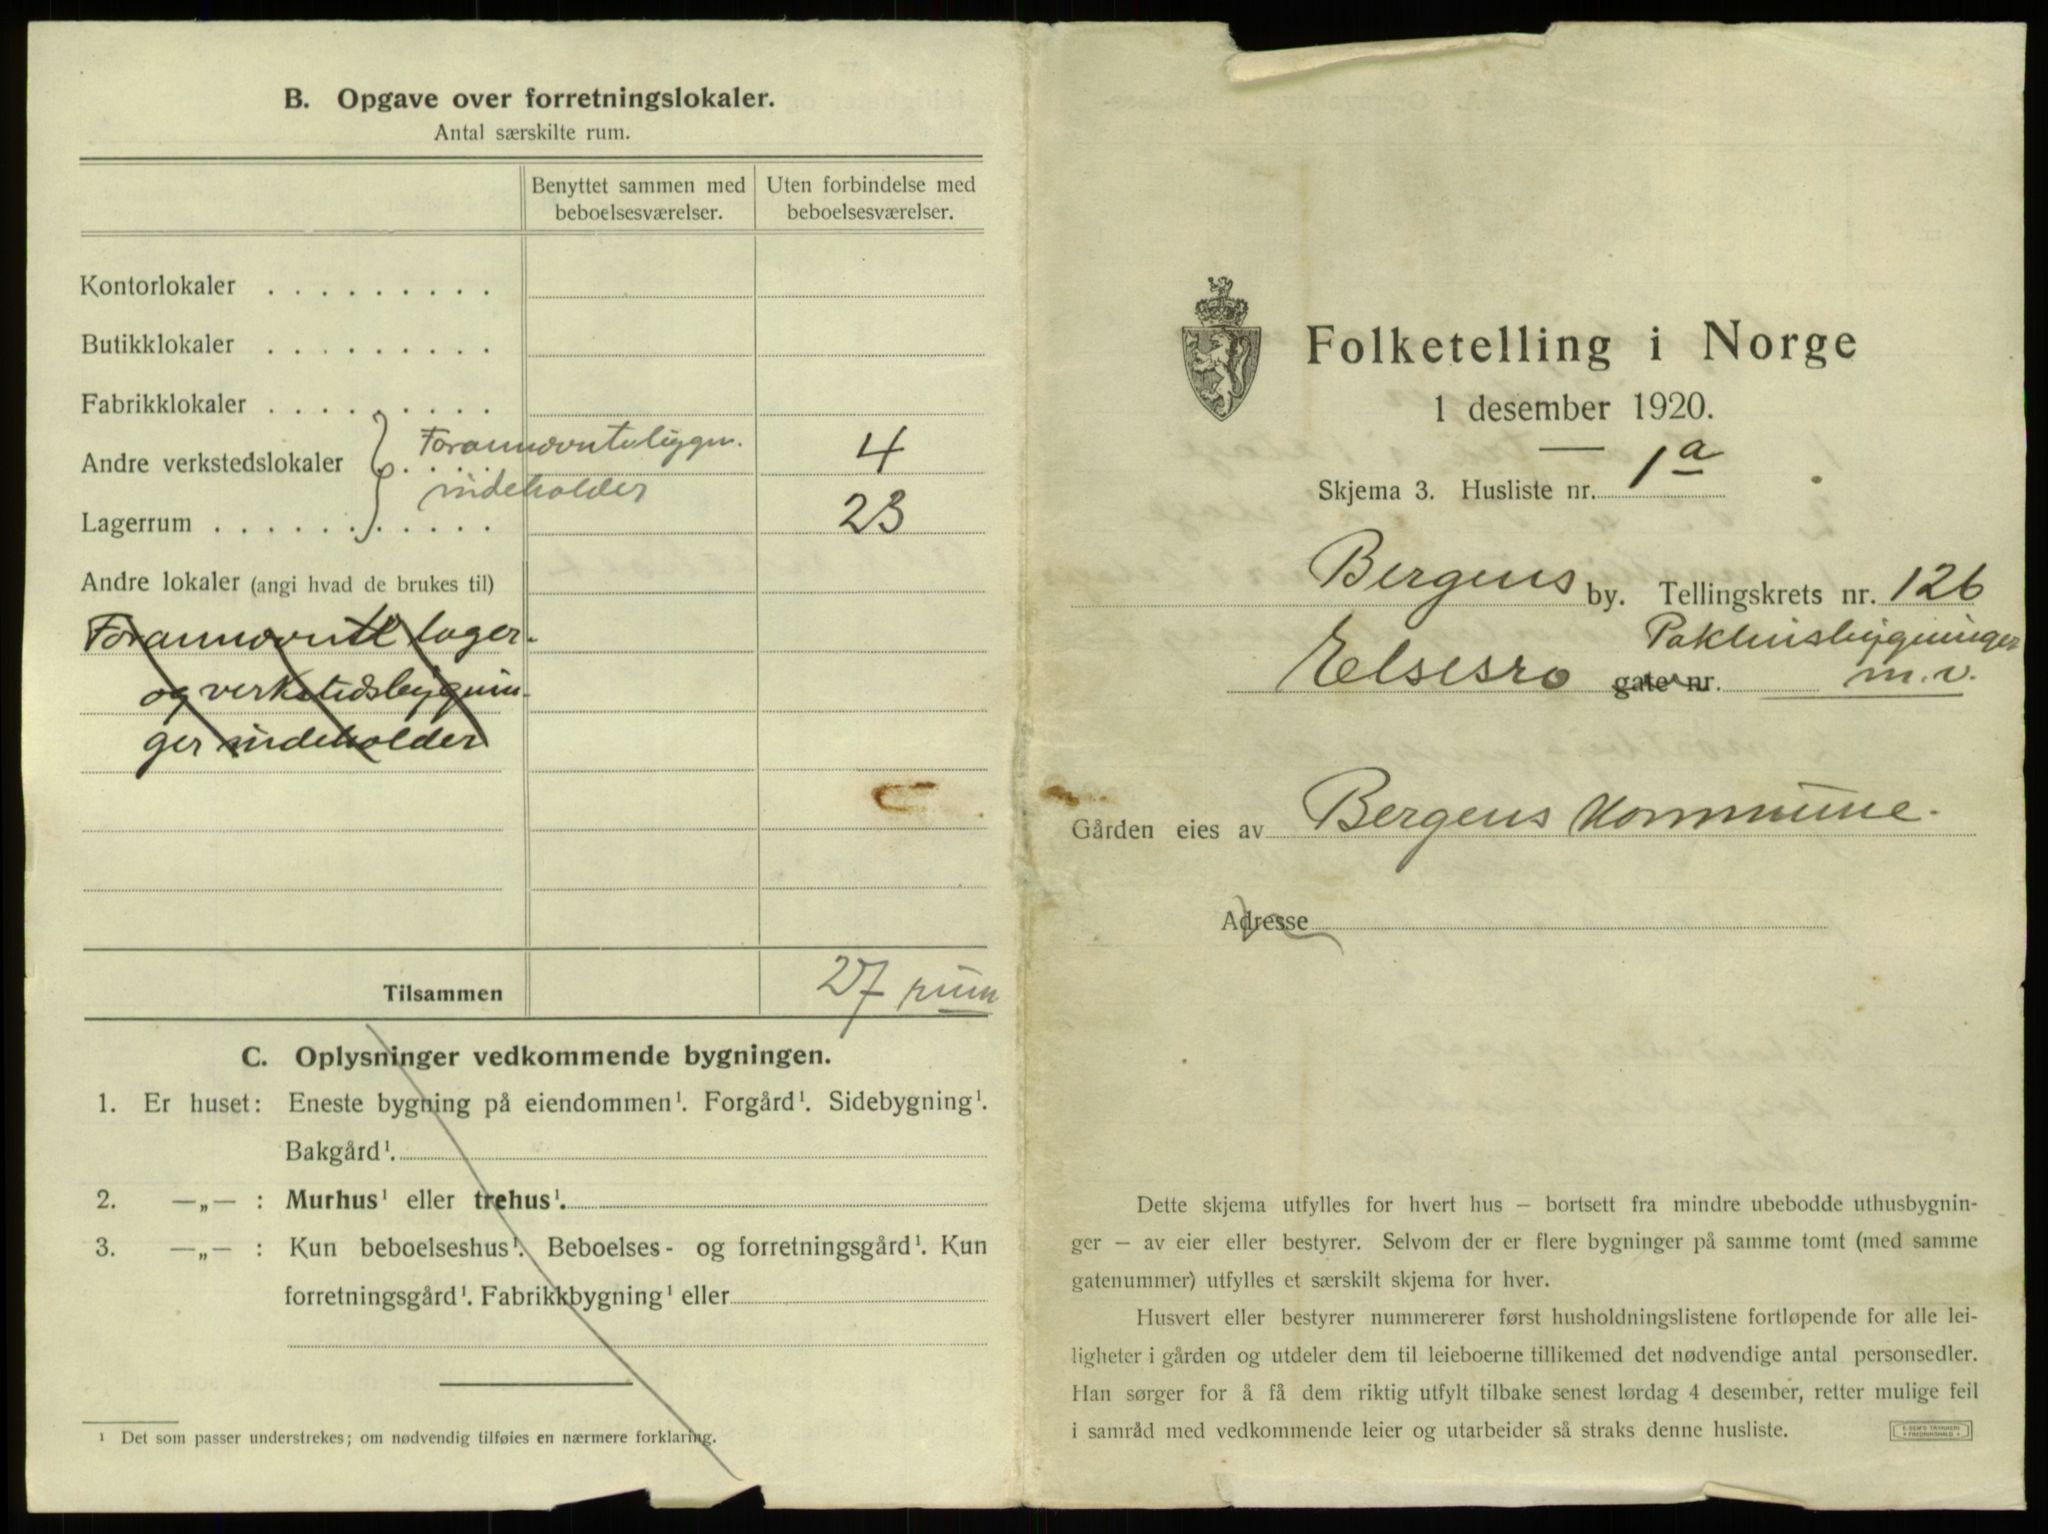 B. Opgave over forretningslokaler.
Antal særskilte rum.
Benyttet sammen med beboelsesværelser.
Uten forbindelse med beboelsesværelser.
Kontorlokaler . . . . . . . . .
Butikklokaler . . . . . . . . .
Fabrikklokaler . . . . . . . . .
Forannævnte bygger.
Andre verkstedslokaler . . . . 4
indeholder
Lagerrum . . . . . . . . . . 23
Andre lokaler (angi hvad de brukes til)
Forannævnte lager-
og verkstedsbygnin-
ger indeholder
Tilsammen 27 rum
C. Oplysninger vedkommende bygningen.
1. Er huset: Eneste bygning på eiendommen¹. Forgård¹. Sidebygning¹.
Bakgård¹.
2. —„— : Murhus¹ eller trehus¹.
3. —„— : Kun beboelseshus¹. Beboelses- og forretningsgård¹. Kun
forretningsgård¹. Fabrikkbygning¹ eller
¹ Det som passer understrekes; om nødvendig tilføies en nærmere forklaring.
Folketelling i Norge
1 desember 1920.
Skjema 3. Husliste nr. 1a
Bergens by. Tellingskrets nr. 126
Pakhusbygninger
Elsesro gate nr. m.v.
Gården eies av Bergens Kommune.
Adresse
Dette skjema utfylles for hvert hus – bortsett fra mindre ubebodde uthusbygnin-
ger – av eier eller bestyrer. Selvom der er flere bygninger på samme tomt (med samme
gatenummer) utfylles et særskilt skjema for hver.
Husvert eller bestyrer nummererer først husholdningslistene fortløpende for alle lei-
ligheter i gården og utdeler dem til leieboerne tillikemed det nødvendige antal personsedler.
Han sørger for å få dem riktig utfylt tilbake senest lørdag 4 desember, retter mulige feil
i samråd med vedkommende leier og utarbeider så straks denne husliste.